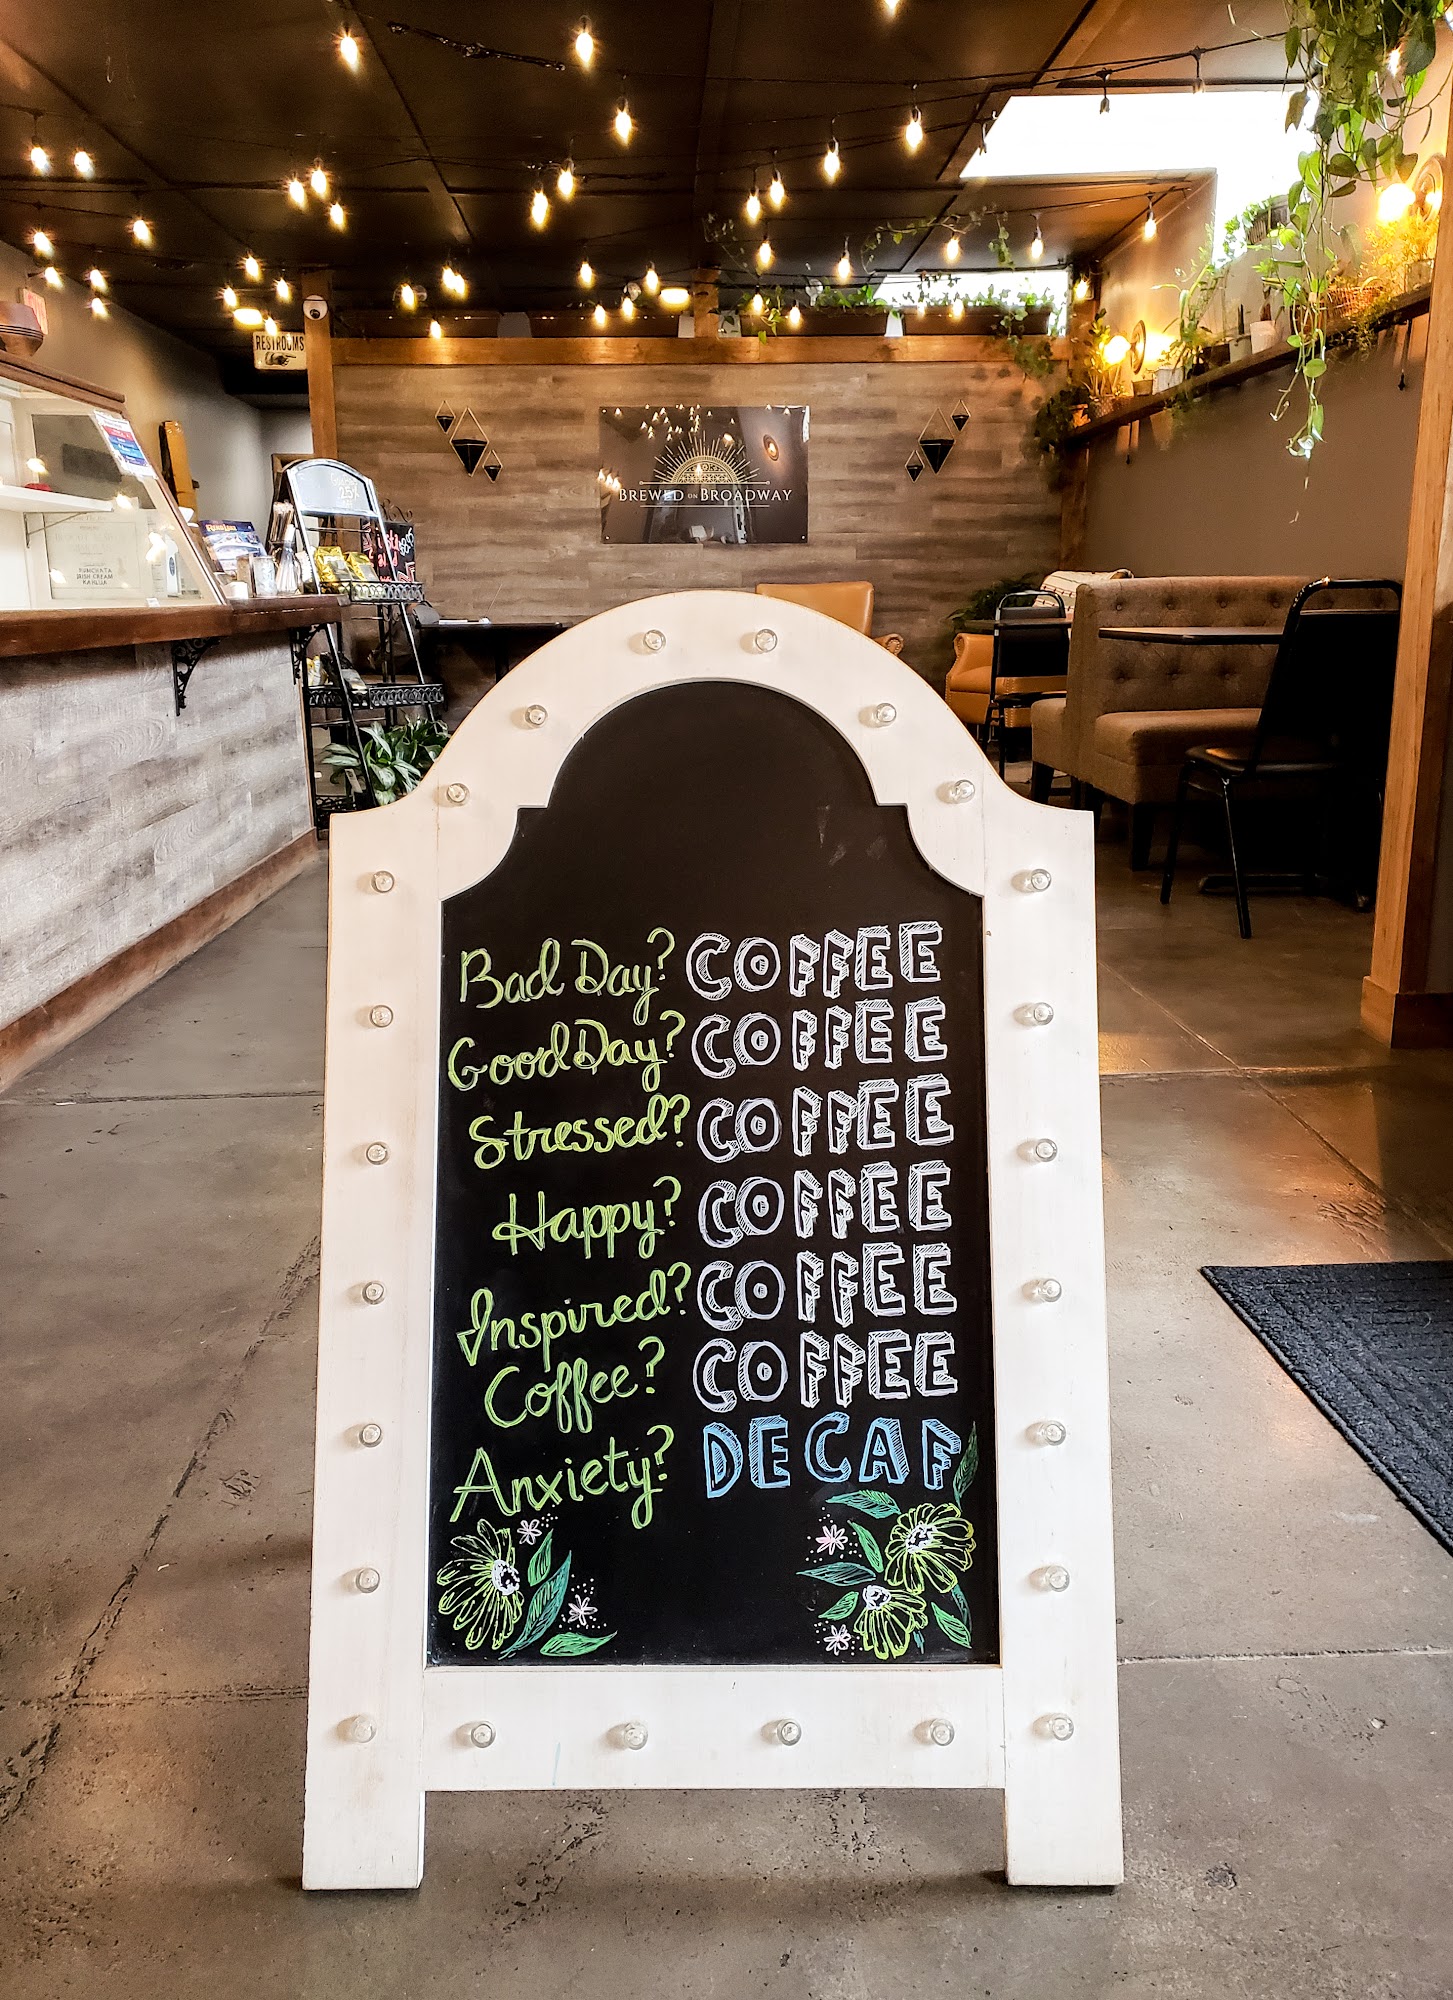 RESTROOMS
BREWED ON BROADWAY
RUMCHATA
IRISH CREAM
KAHLUA
Bad Day? COFFEE
Good Day? COFFEE
Stressed? COFFEE
Happy? COFFEE
Inspired? COFFEE
Coffee? COFFEE
Anxiety? DECAF